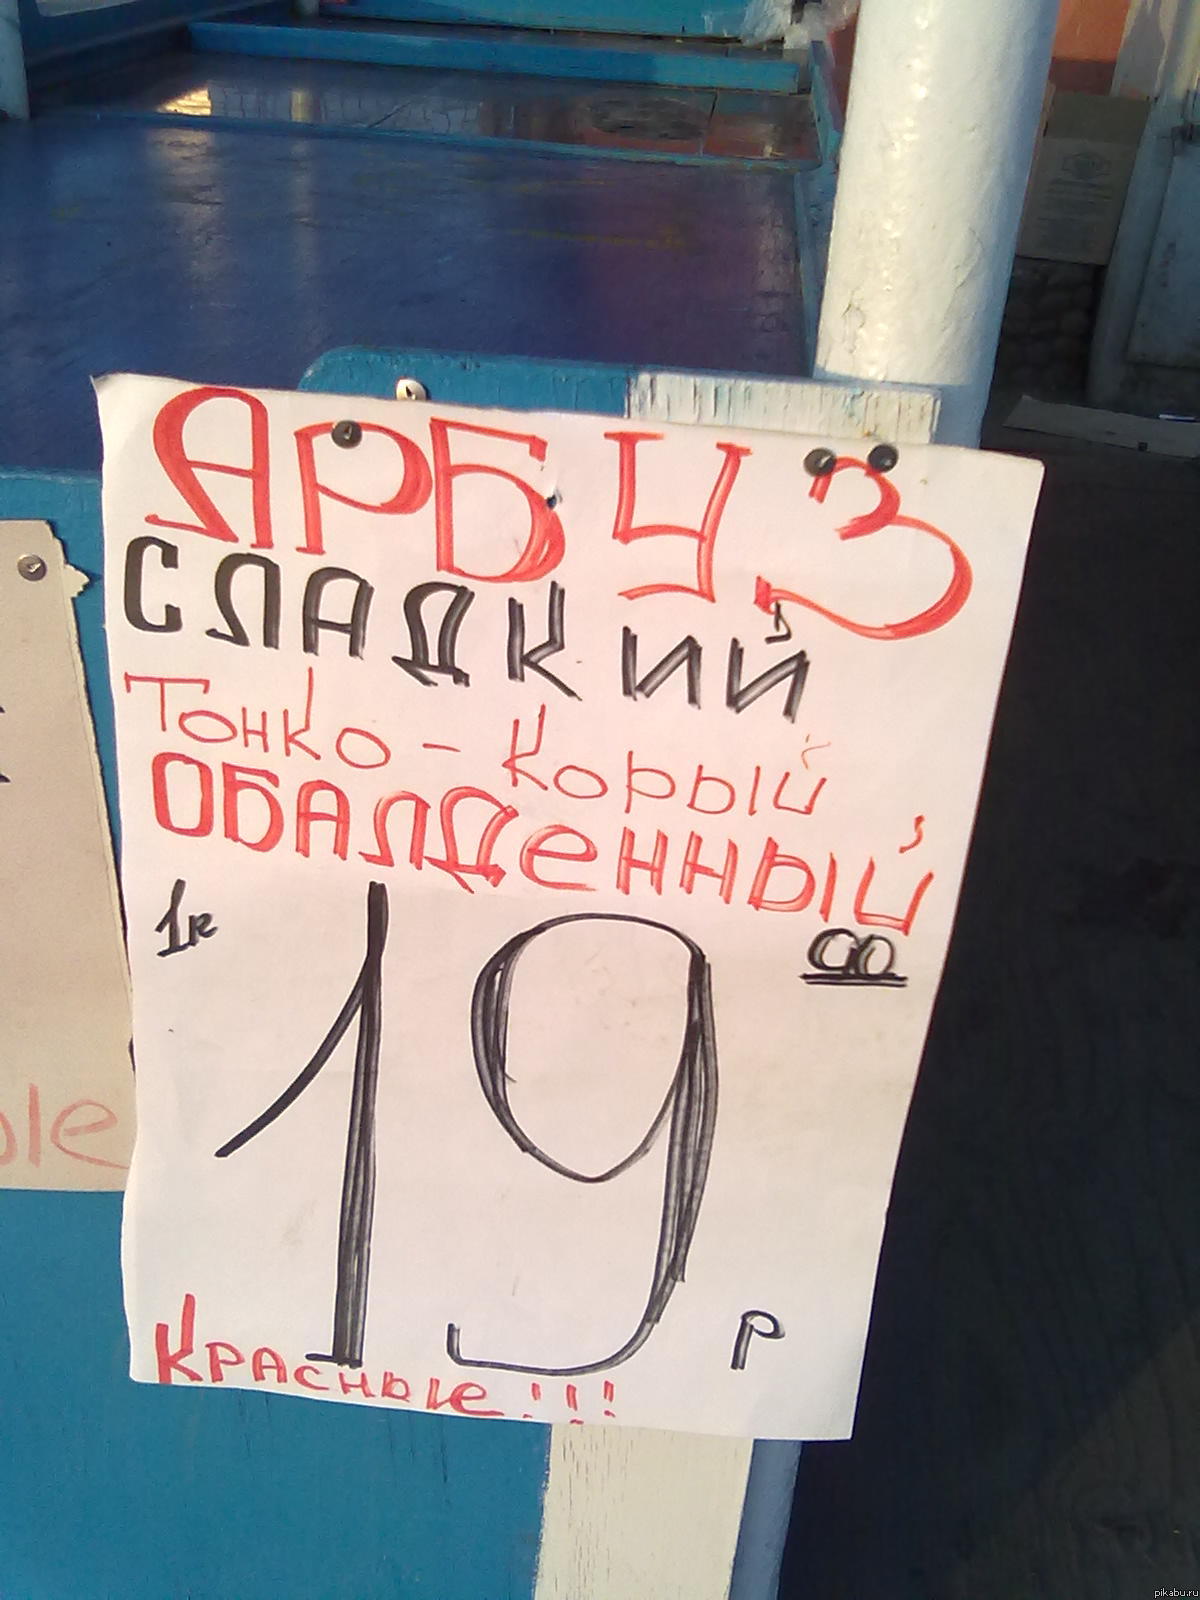 АРБУЗ
СЛАДКИЙ
Тонко-Корый
ОБАЛДеННЫЙ
1к 19 00 р
КРАСНЫе!!!
ые
pikabu.ru